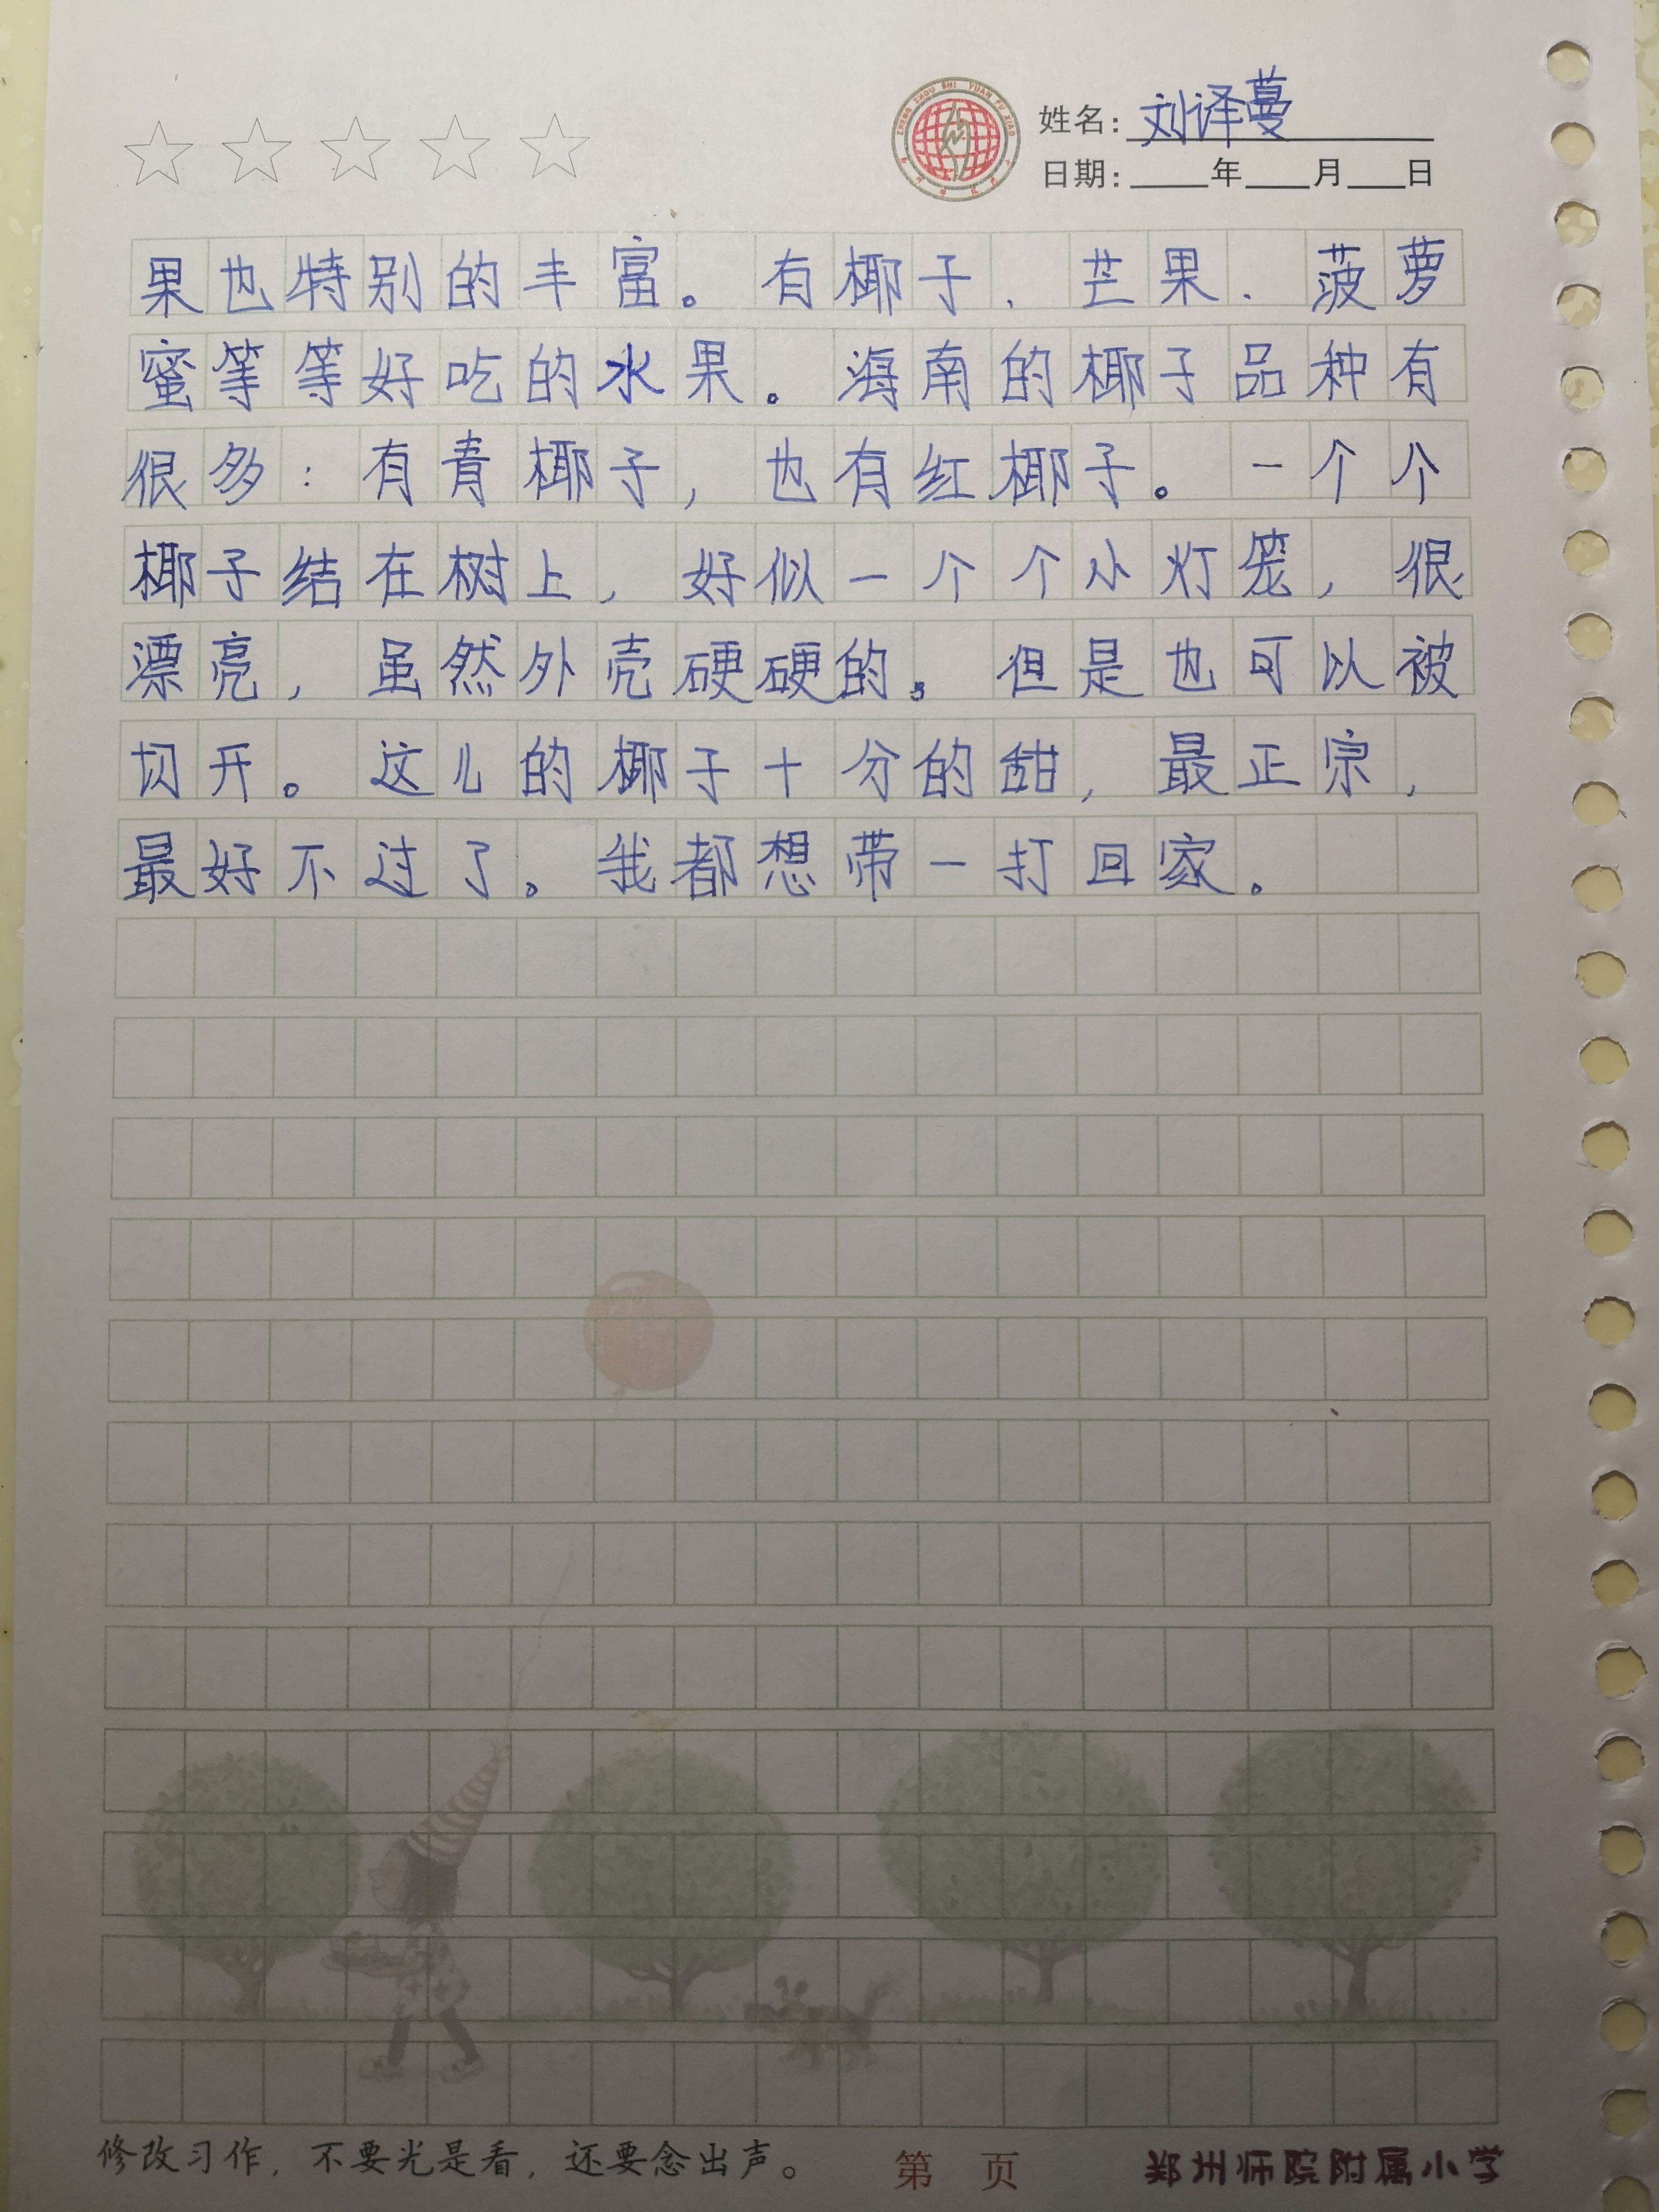 姓名：刘译蔓
日期：____年____月____日
果也特别的丰富。有椰子、芒果、菠萝
蜜等等好吃的水果。海南的椰子品种有
很多：有青椰子，也有红椰子。一个个
椰子结在树上，好似一个个小灯笼，很
漂亮，虽然外壳硬硬的，但是也可以被
切开。这儿的椰子十分的甜，最正宗，
最好不过了。我都想带一打回家。
修改习作，不要光是看，还要念出声。 第 页 郑州师院附属小学